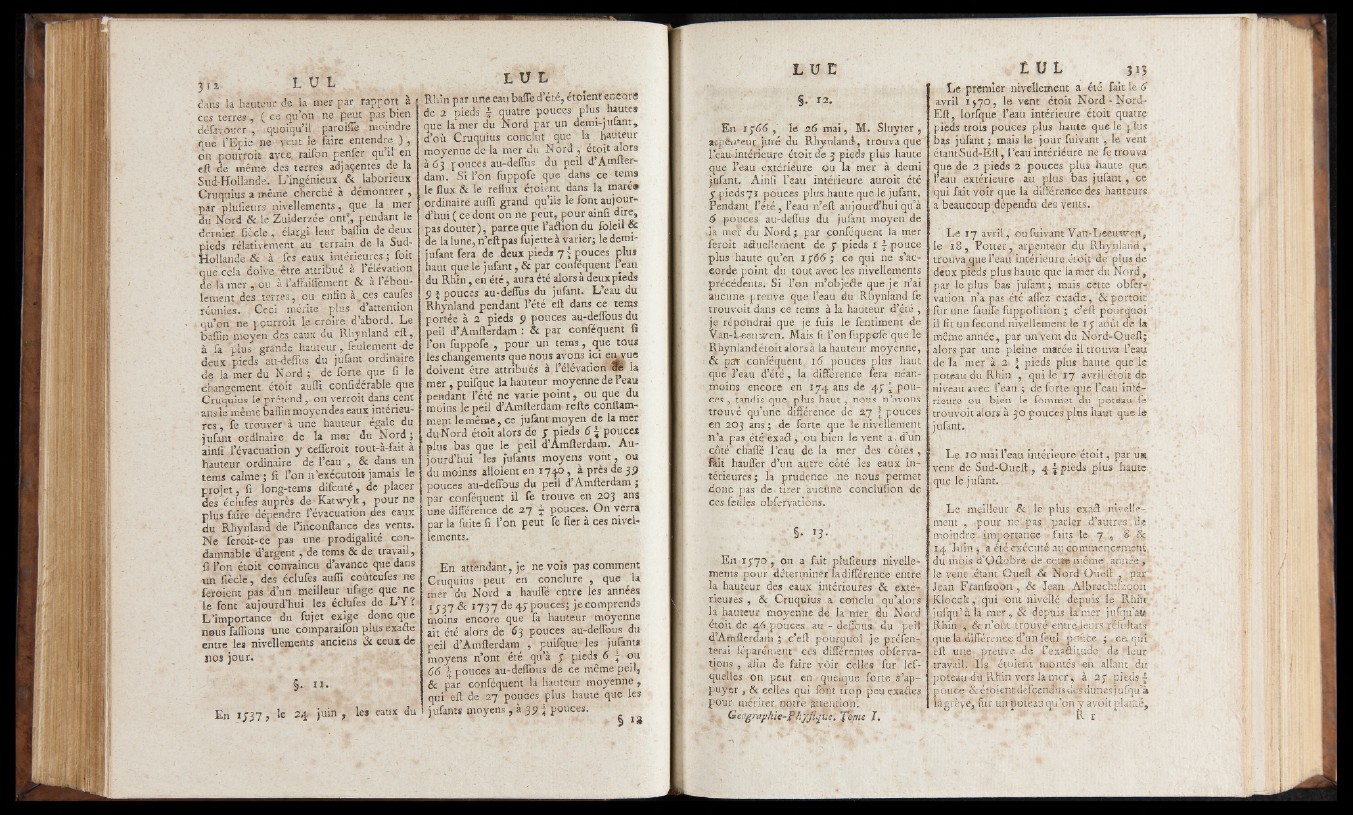 312 LUL
dans la hauteur de la mer par rapport à
ces terres, ( ce qu'on ne peut pas bien
désavouer, quoiqu'il paroisse moindre
que l'Epie ne veut le faire entendre ),
on pourroit avec raison penser qu'il en
est de même des terres adjacentes de la
Sud-Hollande. L'ingénieux & laborieux
Cruquius a même cherché à démontrer,
par plusieurs nivellements, que la mer
du Nord & le Zuiderzée ont, pendant le
dernier siècle, élargi leur bassin de deux
pieds rélativement au terrain de la Sud-
Hollande & à ses eaux intérieures; soit
que cela doive être attribué à l'élévation
de la mer, ou à l'affaissement & à l'ébou-
lement des terres, ou enfin à ces causes
réunies. Ceci mérite plus d'attention
qu'on ne pourroit le croire d'abord. Le
bassin moyen des eaux du Rhynland est,
à sa plus grande hauteur, seulement de
deux pieds au-dessus du jusant ordinaire
de la mer du Nord; de sorte que si le
changement étoit aussi considérable que
Cruquius le prétend, on verroit dans cent
ans le même bassin moyen des eaux intérieu-
res, se trouver à une hauteur égale du
jusant ordinaire de la mer du Nord;
ainsi l'évacuation y cesseroit tout-à-fait à
hauteur ordinaire de l'eau, & dans un
tems calme; si l'on n'exécutoit jamais le
projet, si long-tems discuté, de placer
des écluses auprès de Katwyk, pour ne
plus faire dépendre l'évacuation des eaux
du Rhynland de l'inconstance des vents.
Ne seroit-ce pas une prodigalité con-
damnable d'argent, de tems & de travail,
si l'on étoit convaincu d'avance que dans
un siècle, des écluses aussi coûteuses ne
seroient pas d'un meilleur usage que ne
le font aujourd'hui les écluses de L'Y?
L'importance du sujet exige donc que
nous fassions une comparaison plus exacte
entre les nivellements anciens & ceux de
nos jour.
§. 11.
En 1537, le 24 juin, les eaux du
LUL
Rhin par une eau basse d'été, étoient encore
de 2 pieds ¼ quatre pouces plus hautes
que la mer du Nord par un demi-jusant,
d'où Cruquius conclut que la hauteur
moyenne de la mer du Nord, étoit alors
à 63 pouces au-dessus du peil d'Amster-
dam. Si l'on suppose que dans ce tems
le flux & le reflux étoient dans la marée
ordinaire aussi grand qu'ils le sont aujour-
d'hui ( ce dont on ne peut, pour ainsi dire,
pas douter ), parce que l'action du soleil &
de la lune, n'est pas sujette à varier; le demi-
jusant sera de deux pieds 7 ¼ pouces plus
haut que le jusant, & par conséquent l'eau
du Rhin, en été, aura été alors à deux pieds
9 ¼ pouces au-dessus du jusant. L'eau du
Rhynland pendant l'été est dans ce tems
portée à 2 pieds 9 pouces au-dessous du
peil d'Amsterdam : & par conséquent si
l'on suppose, pour un tems, que tous
les changements que nous avons ici en vue
doivent être attribués à l'élévation de la
mer, puisque la hauteur moyenne de l'eau
pendant l'été ne varie point, ou que du
moins le peil d'Amsterdam reste constam-
ment le même, ce jusant moyen de la mer
du Nord étoit alors de 5 pieds 6 ¼ pouces
plus bas que le peil d'Amsterdam. Au-
jourd'hui les jusants moyens vont, ou
du moinss alloient en 1740, à près de 39
pouces au-dessous du peil d'Amsterdam;
par conséquent il se trouve en 203 ans
une différence de 27 ¼ pouces. On verra
par la suite si l'on peut se fier à ces nivel-
lements.
En attendant, je ne vois pas comment
Cruquius peut en conclure, que la
mer du Nord a haussé entre les années
1537 & 1737 de 45 pouces; je comprends
moins encore que sa hauteur moyenne
ait été alors de 63 pouces au-dessous du
peil d'Amsterdam, puisque les jusants
moyens n'ont été qu'à 5 pieds 6 ¼ ou
66 ¼ pouces au-dessous de ce même peil,
& par conséquent la hauteur moyenne,
qui est de 27 pouces plus haute que les
jusants moyens, à 39 ¼ pouces.
§ 12
LUL
§. 12.
En 1566, le 26 mai, M. Sluyter,
arpenteur juré du Rhynland, trouva que
l'eau intérieure étoit de 3 pieds plus haute
que l'eau extérieure ou la mer à demi
jusant. Ainsi l'eau intérieure auroit été
5 pieds 71 pouces plus haute que le jusant.
Pendant l'été, l'eau n'est aujourd'hui qu'à
6 pouces au-dessus du jusant moyen de
la mer du Nord; par conséquent la mer
seroit actuellement de 5 pieds 1 ½ pouce
plus haute qu'en 1566; ce qui ne s'ac-
corde point du tout avec les nivellements
précédents. Si l'on m'objecte que je n'ai
aucune preuve que l'eau du Rhynland se
trouvoit dans ce tems à la hauteur d'été,
je répondrai que je suis le sentiment de
Van-Leeuwen. Mais si l'on suppose que le
Rhynland étoit alors à la hauteur moyenne,
& par conséquent 16 pouces plus haut
que l'eau d'été, la différence sera néan-
moins encore en 174 ans de 45 ½ pou-
ces, tandis que, plus haut, nous n'avons
trouvé qu'une différence de 27 ¼ pouces
en 203 ans; de sorte que le nivellement
n'a pas été exact, ou bien le vent a d'un
côté chassé l'eau de la mer des côtes,
fait hausser d'un autre côté les eaux in-
térieures; la prudence ne nous permet
donc pas de tirer aucune conclusion de
ces seules observations.
§. 13.
En 1570, on a fait plusieurs nivelle-
ments pour déterminer la différence entre
la hauteur des eaux intérieures & exté-
rieures, & Cruquius a conclu qu'alors
la hauteur moyenne de la mer du Nord
étoit de 46 pouces au-dessous du peil
d'Amsterdam; c'est pourquoi je présen-
terai séparément ces différentes observa-
tions, afin de faire voir celles sur les-
quelles on peut en quelque sorte s'ap-
puyer, & celles qui sont trop peu exactes
pour mériter notre attention.
Géographie-Physique. Tome I.
LUL 313
Le premier nivellement a été fait le 6
avril 1570, le vent étoit Nord-Nord-
Est, lorsque l'eau intérieure étoit quatre
pieds trois pouces plus haute que le plus
bas jusant; mais le jour suivant, le vent
étant Sud-Est, l'eau intérieure ne se trouva
que de 2 pieds 2 pouces plus haute que
l'eau extérieure au plus bas jusant, ce
qui fait voir que la différence des hauteurs
a beaucoup dépendu des vents.
Le 17 avril, ou suivant Van-Leeuwen,
le 18, Potter, arpenteur du Rhynland,
trouva que l'eau intérieure étoit de plus de
deux pieds plus haute que la mer du Nord,
par le plus bas jusant; mais cette obser-
vation n'a pas été assez exacte, & portoit
sur une fausse supposition; c'est pourquoi
il fit un second nivellement le 15 août de la
même année, par un vent du Nord-Ouest;
alors par une pleine marée il trouva l'eau
de la mer à 2 ¼ pieds plus haute que le
poteau du Rhin, qui le 17 avril étoit de
niveau avec l'eau; de sorte que l'eau inté-
rieure ou bien le sommet du poteau se
trouvoit alors à 30 pouces plus haut que le
jusant.
Le 10 mai l'eau intérieure étoit, par un
vent de Sud-Ouest, 4 ¼ pieds plus haute
que le jusant.
Le meilleur & le plus exact nivelle-
ment, pour ne pas parler d'autres de
moindre importance faits le 7, 8 &
14 Juin, a été exécuté au commencement
du mois d'Octobre de cette même année,
le vent étant Ouest & Nord-Ouest, par
Jean Franszoon, & Jean Albrechtszoon
Klocck, qui ont nivellé depuis le Rhin
jusqu'à la mer, & depuis la mer jusqu'au
Rhin, & n'ont trouvé entre leurs résultats
que la différence d'un seul pouce; ce qui
est une preuve de l'exactitude de leur
travail. Ils étoient montés en allant du
poteau du Rhin vers la mer, à 25 pieds ¼
pouce & étoient descendus des dunes jusqu'à
la grève, sur un poteau qu'on y avoit planté,
R r